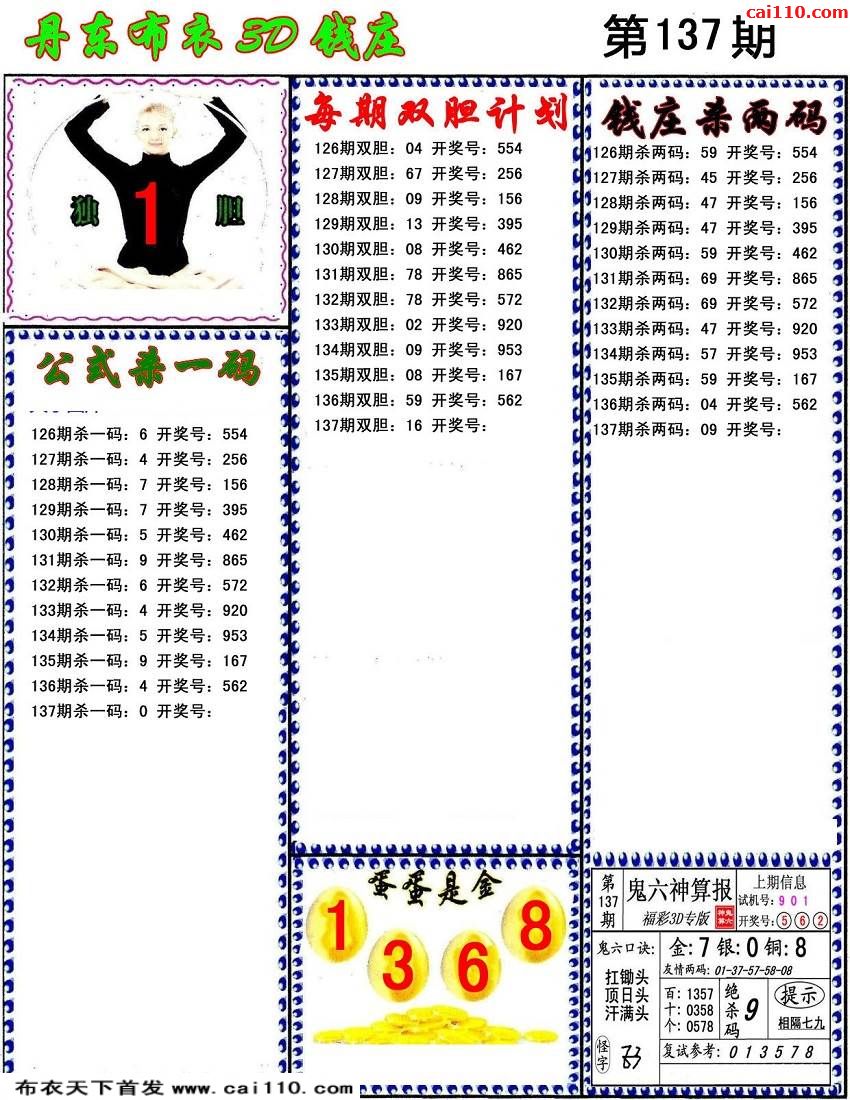 cai110.com
丹东布衣3D钱庄
第137期
独 1 胆
公式杀一码
126期杀一码: 6 开奖号: 554
127期杀一码: 4 开奖号: 256
128期杀一码: 7 开奖号: 156
129期杀一码: 7 开奖号: 395
130期杀一码: 5 开奖号: 462
131期杀一码: 9 开奖号: 865
132期杀一码: 6 开奖号: 572
133期杀一码: 4 开奖号: 920
134期杀一码: 5 开奖号: 953
135期杀一码: 9 开奖号: 167
136期杀一码: 4 开奖号: 562
137期杀一码: 0 开奖号:
每期双胆计划
126期双胆: 04 开奖号: 554
127期双胆: 67 开奖号: 256
128期双胆: 09 开奖号: 156
129期双胆: 13 开奖号: 395
130期双胆: 08 开奖号: 462
131期双胆: 78 开奖号: 865
132期双胆: 78 开奖号: 572
133期双胆: 02 开奖号: 920
134期双胆: 09 开奖号: 953
135期双胆: 08 开奖号: 167
136期双胆: 59 开奖号: 562
137期双胆: 16 开奖号:
钱庄杀两码
126期杀两码: 59 开奖号: 554
127期杀两码: 45 开奖号: 256
128期杀两码: 47 开奖号: 156
129期杀两码: 47 开奖号: 395
130期杀两码: 59 开奖号: 462
131期杀两码: 69 开奖号: 865
132期杀两码: 69 开奖号: 572
133期杀两码: 47 开奖号: 920
134期杀两码: 57 开奖号: 953
135期杀两码: 59 开奖号: 167
136期杀两码: 04 开奖号: 562
137期杀两码: 09 开奖号:
蛋蛋是金
1 3 6 8
第137期
鬼六神算报
福彩3D专版
上期信息
试机号: 901
开奖号: 562
鬼六口诀:
扛锄头
顶日头
汗满头
金: 7 银: 0 铜: 8
友情两码: 01-37-57-58-08
百: 1357
十: 0358
个: 0578
绝杀码 9
提示
相隔七九
怪字
复试参考: 013578
布衣天下首发 www.cai110.com